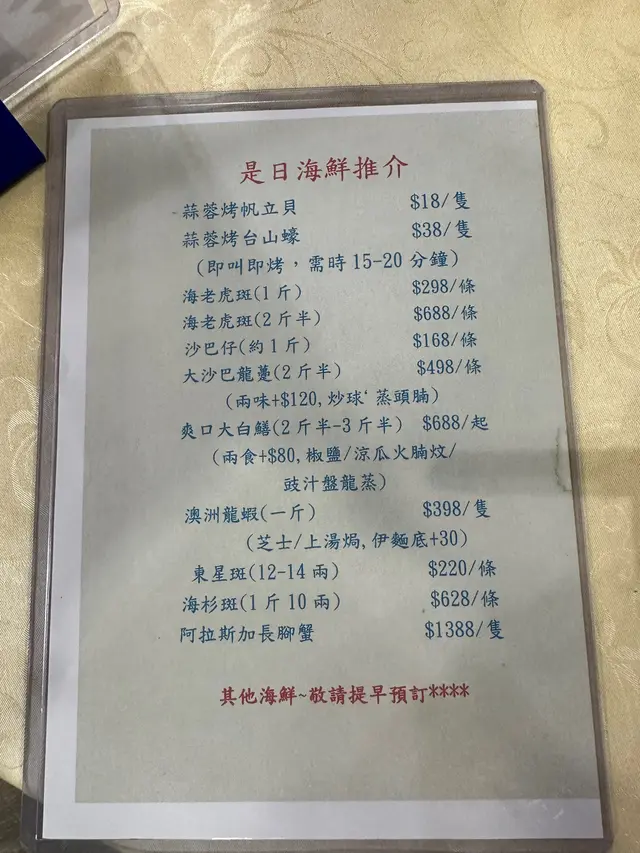 是日海鮮推介
蒜蓉烤帆立貝 $18/隻
蒜蓉烤台山蠔 $38/隻
(即叫即烤，需時 15-20 分鐘)
海老虎斑(1 斤) $298/條
海老虎斑(2 斤半) $688/條
沙巴仔(約 1 斤) $168/條
大沙巴龍躉(2 斤半) $498/條
(兩味+$120, 炒球‘ 蒸頭腩)
爽口大白鱔(2 斤半-3 斤半) $688/起
(兩食+$80, 椒鹽/涼瓜火腩炆/
豉汁盤龍蒸)
澳洲龍蝦(一斤) $398/隻
(芝士/上湯焗, 伊麵底+30)
東星斑(12-14 兩) $220/條
海杉斑(1 斤 10 兩) $628/條
阿拉斯加長腳蟹 $1388/隻
其他海鮮~敬請提早預訂****